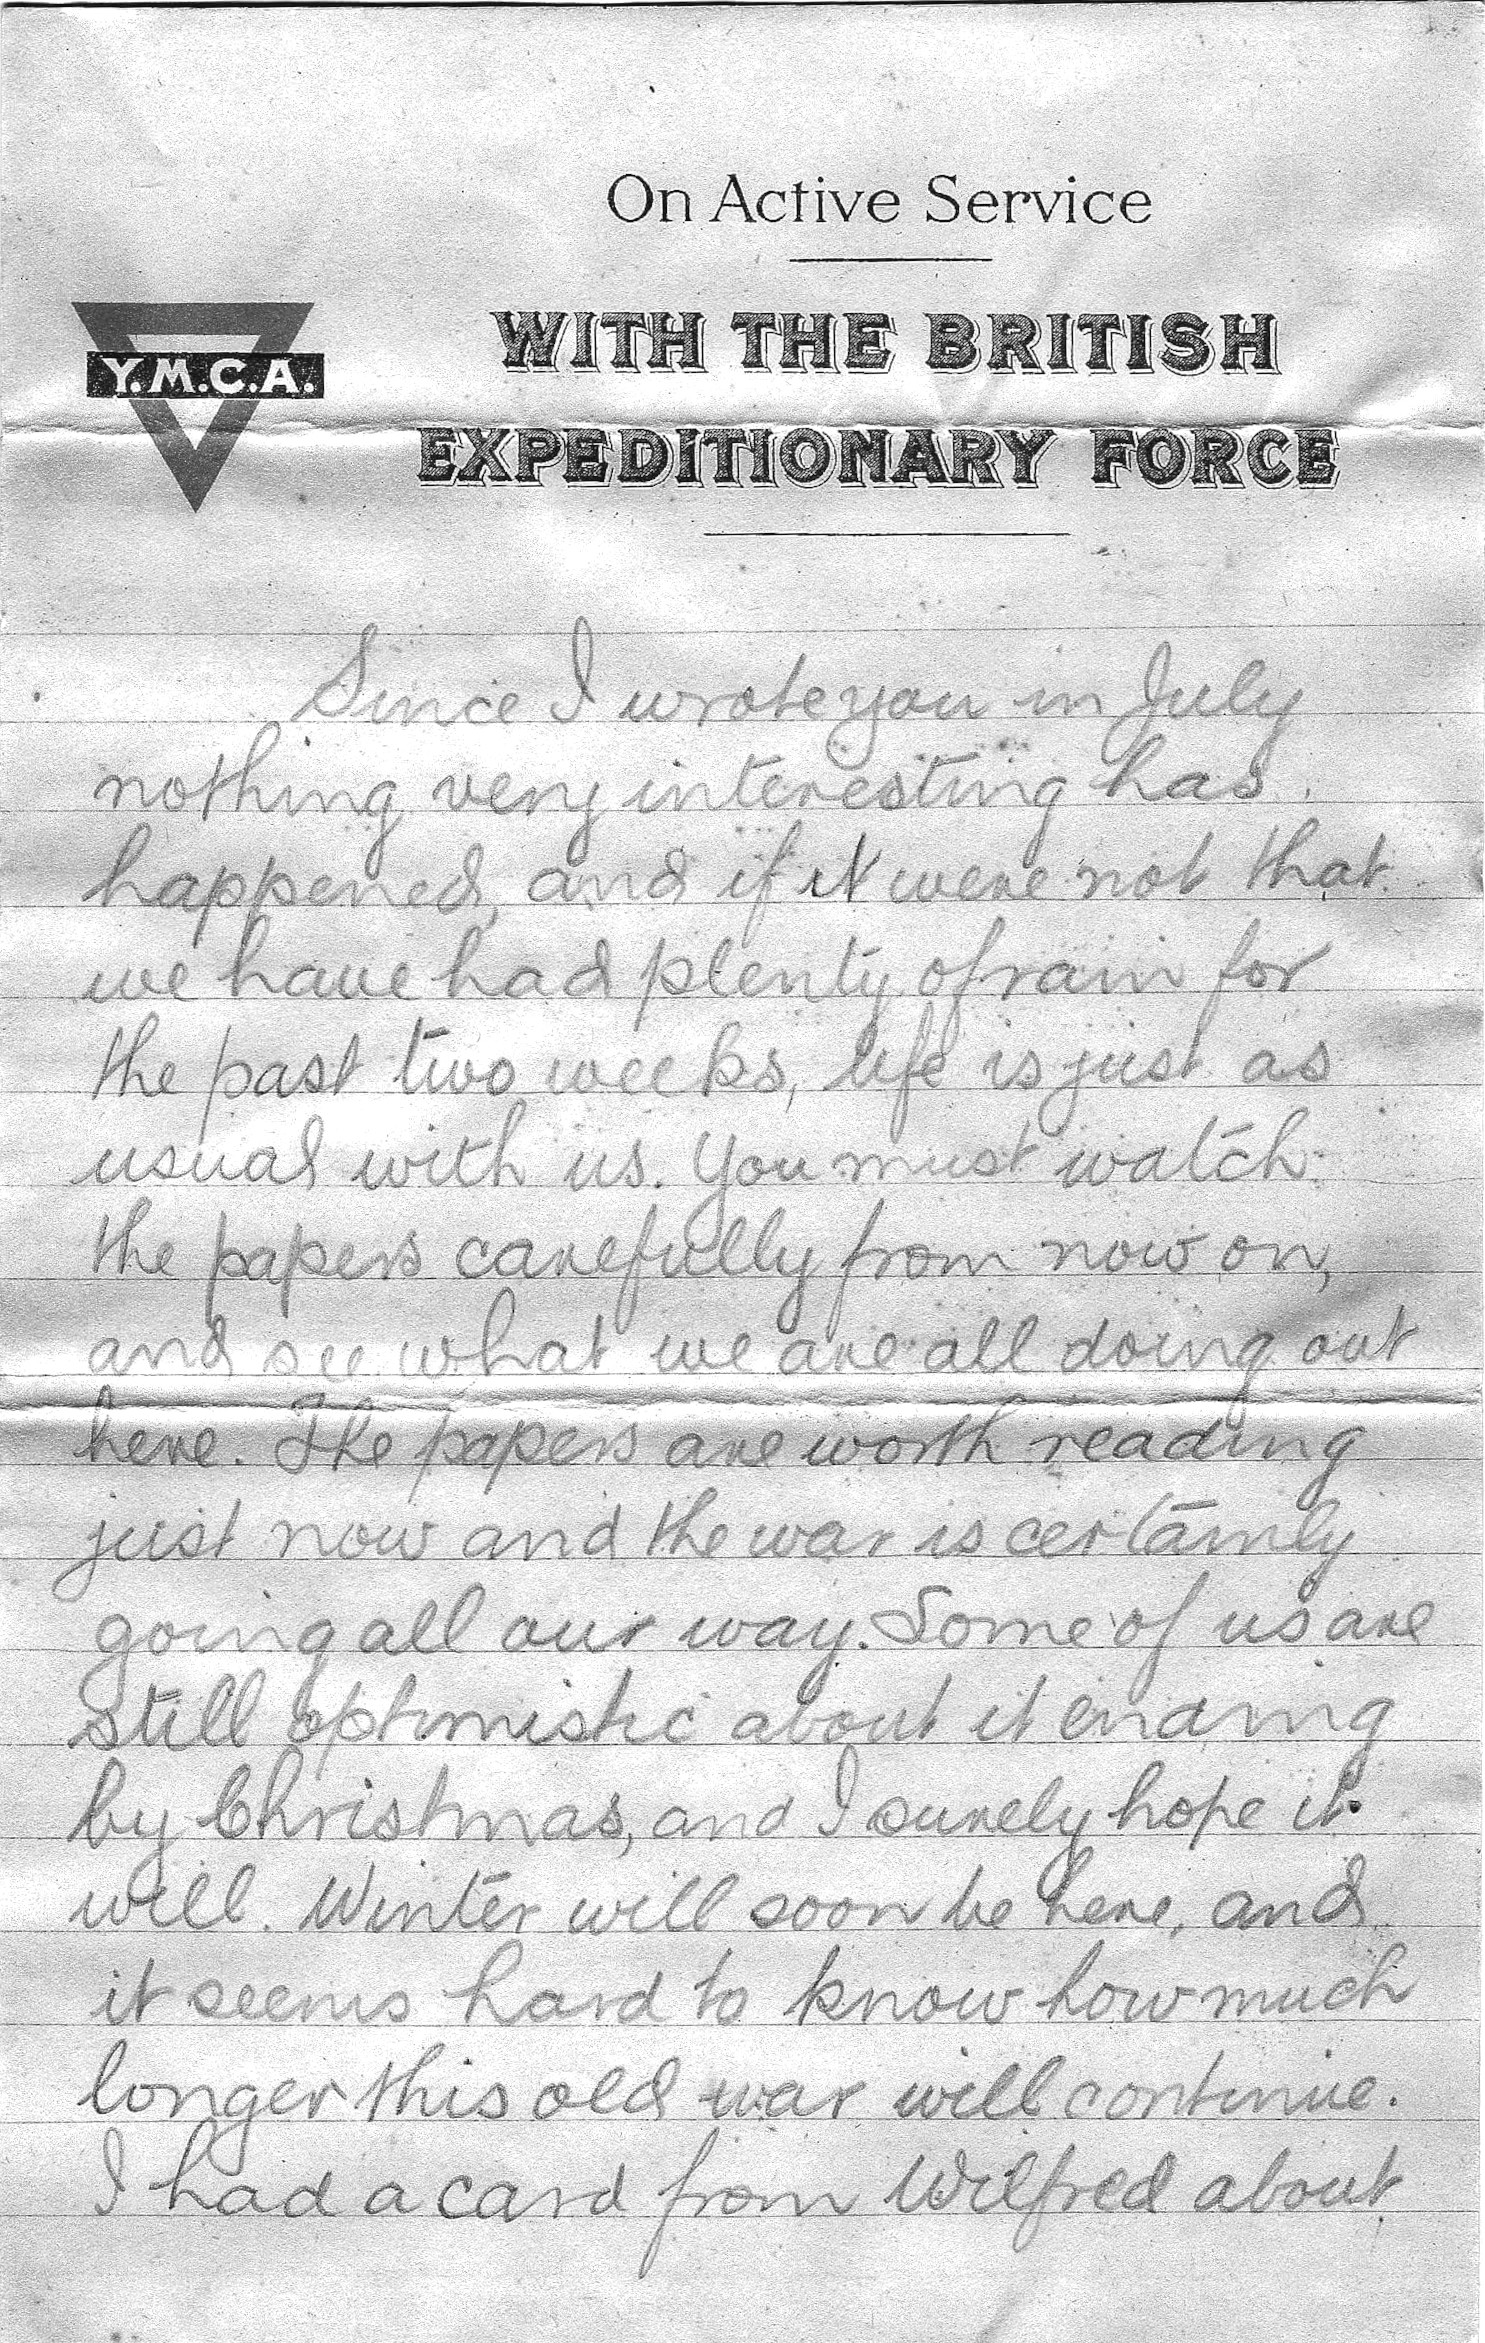 On Active Service
WITH THE BRITISH
Y.M.C.A.
EXPEDITIONARY FORCE
Since I wrote you in July
nothing very interesting has
happened, and if it were not that
we have had plenty of rain for
the past two weeks, life is just as
usual with us. You must watch
the papers carefully from now on,
and see what we are all doing out
here. The papers are worth reading
just now and the war is certainly
going all our way. Some of us are
still optimistic about it ending
by Christmas, and I surely hope it
will. Winter will soon be here, and
it seems hard to know how much
longer this old war will continue.
I had a card from Wilfred about